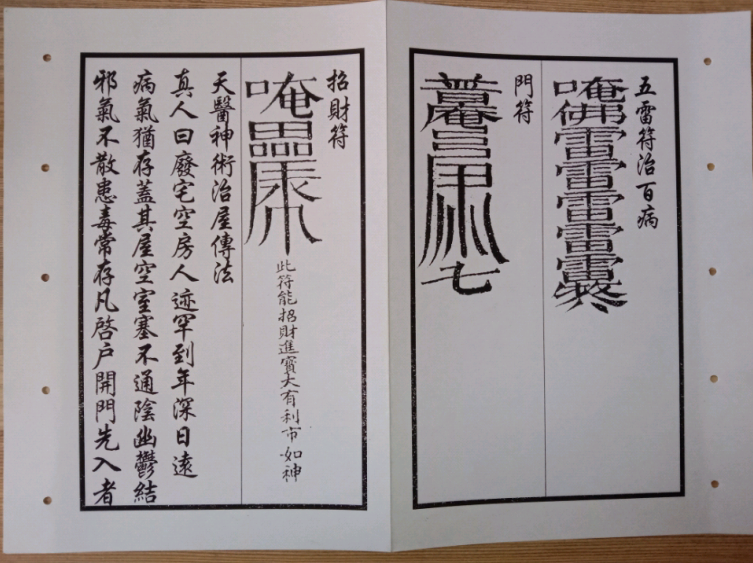 五雷符治百病
唵佛雷雷雷雷雷
門符
普庵
七
招財符
唵
此符能招財進寶大有利市如神
天醫神術治屋傳法
真人曰廢宅空房人迹罕到年深日遠
病氣猶存蓋其屋空室塞不通陰幽鬱結
邪氣不散患毒常存凡啓戶開門先入者